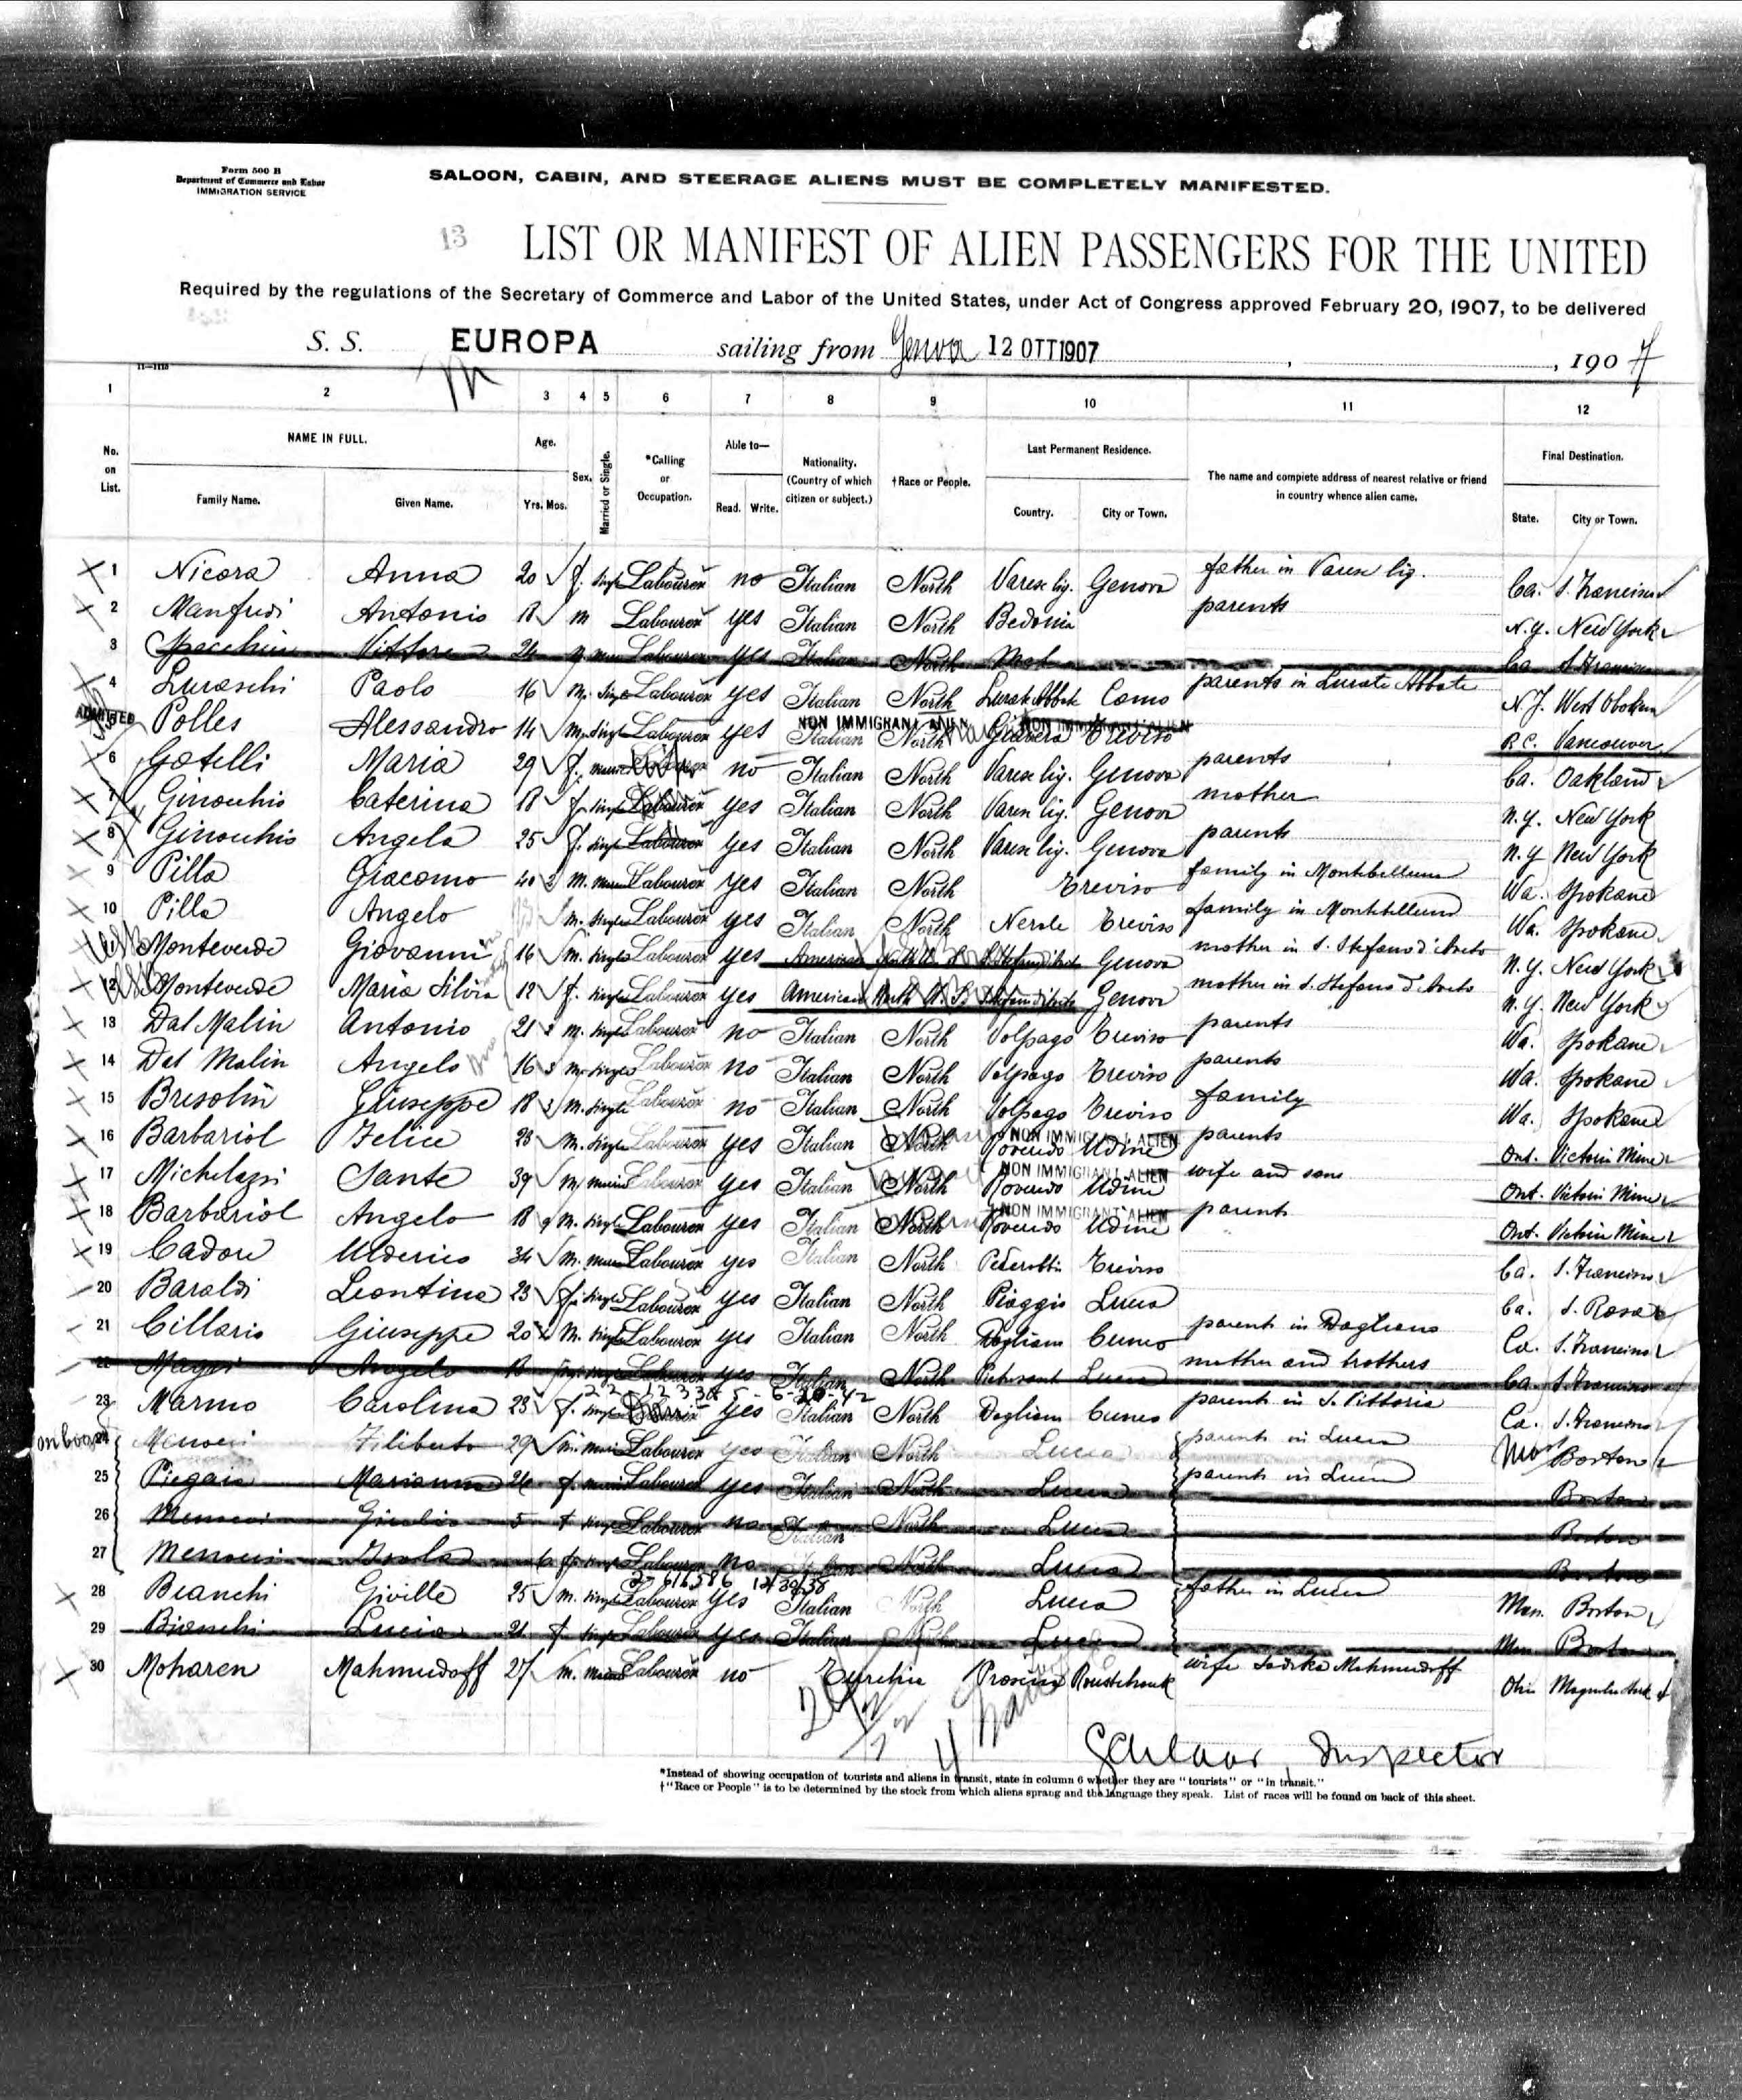 Form 500 B
Department of Commerce and Labor
IMMIGRATION SERVICE
SALOON, CABIN, AND STEERAGE ALIENS MUST BE COMPLETELY MANIFESTED.
13
LIST OR MANIFEST OF ALIEN PASSENGERS FOR THE UNITED
Required by the regulations of the Secretary of Commerce and Labor of the United States, under Act of Congress approved February 20, 1907, to be delivered
S. S. EUROPA sailing from Genova 12 OTT 1907 , , 1907
1 2 3 4 5 6 7 8 9 10 11 12
No. on List. NAME IN FULL. Family Name. Given Name. Age. Yrs. Mos. Sex. Married or Single. *Calling or Occupation. Able to— Read. Write. Nationality. (Country of which citizen or subject.) †Race or People. Last Permanent Residence. Country. City or Town. The name and complete address of nearest relative or friend in country whence alien came. Final Destination. State. City or Town.
1 Nicora Anna 20 f. Labourer no Italian North Varese lig. Genova father in Varese lig. Ca. S. Francisco
2 Manfredi Antonio 18 m Labourer yes Italian North Bedonia parents N.Y. New York
3 Vittore Labourer yes Italian North Ca S. Francisco
4 Luraschi Paolo 16 m. single Labourer yes Italian North Lurate Abbate Como parents in Lurate Abbate N.J. West Oboken
ADMITTED 5 Polles Alessandro 14 m. single Labourer yes NON IMMIGRANT ALIEN Italian North NON IMMIGRANT ALIEN Giavera Treviso B.C. Vancouver
6 Gotelli Maria 29 f. no Italian North Varese lig. Genova parents Ca. Oakland
7 Ginocchio Caterina 18 f. single Labourer yes Italian North Varese lig. Genova mother N.Y. New York
8 Ginocchio Angela 25 f. single Labourer yes Italian North Varese lig. Genova parents N.Y New York
9 Pilla Giacomo 40 m. Labourer yes Italian North Treviso family in Montebelluna Wa. Spokane
10 Pilla Angelo m. single Labourer yes Italian North Treviso family in Montebelluna Wa. Spokane
Monteverde Giovanni 16 m. single Labourer yes American Genova mother in S. Stefano d'Aveto N.Y. New York
12 Monteverde Maria Silvia 12 f. single Labourer yes American North Genova mother in S. Stefano d'Aveto N.Y. New York
13 Dal Malin Antonio 21 m. single Labourer no Italian North Volpago Treviso parents Wa. Spokane
14 Dal Malin Angelo 16 m. single Labourer no Italian North Volpago Treviso parents Wa. Spokane
15 Bresolin Giuseppe 18 m. single Labourer no Italian North Volpago Treviso family Wa. Spokane
16 Barbariol Felice 28 m. single Labourer yes Italian North NON IMMIGRANT ALIEN Roveredo Udine parents Ont. Victoria Mine
17 Michelazzi Sante 39 m. Labourer yes Italian North NON IMMIGRANT ALIEN Roveredo Udine wife and sons Ont. Victoria Mine
18 Barbariol Angelo 18 m. single Labourer yes Italian North NON IMMIGRANT ALIEN Roveredo Udine parents Ont. Victoria Mine
19 Cadore Ulderico 34 m. Labourer yes Italian North Treviso Ca. S. Francisco
20 Baraldi Leontina 23 f. single Labourer yes Italian North Piaggio Lucca Ca. S. Rosa
21 Cillario Giuseppe 20 m. single Labourer yes Italian North Dogliani Cuneo parents in Dogliani Ca. S. Francisco
22 Angelo 18 Labourer yes Italian North Lucca mother and brothers Ca. S. Francisco
23 Marino Carolina 23 f. single yes Italian North Dogliani Cuneo parents in S. Vittoria Ca. S. Francisco
24 Filiberto 29 m. Labourer yes Italian North Lucca parents in Lucca Mas Boston
25 Piegaia Marianna 26 f. Labourer yes Italian North Lucca parents in Lucca Boston
26 Giulia 5 f single Labourer no Italian North Lucca Boston
27 Isola f. single Labourer no North Lucca Boston
28 Bianchi Giville 25 m. single Labourer yes Italian North Lucca father in Lucca Mas. Boston
29 Bianchi Lucia 21 f. Labourer yes Italian North Lucca Mas. Boston
30 Moharen Mahmudoff 27 m. Labourer no Roustchouk wife Mahmudoff Ohio
Inspector
*Instead of showing occupation of tourists and aliens in transit, state in column 6 whether they are "tourists" or "in transit."
†"Race or People" is to be determined by the stock from which aliens sprang and the language they speak. List of races will be found on back of this sheet.